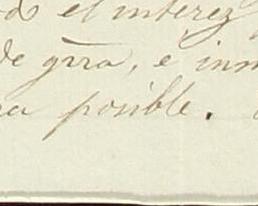 el interez
de grra, e inm
posible.